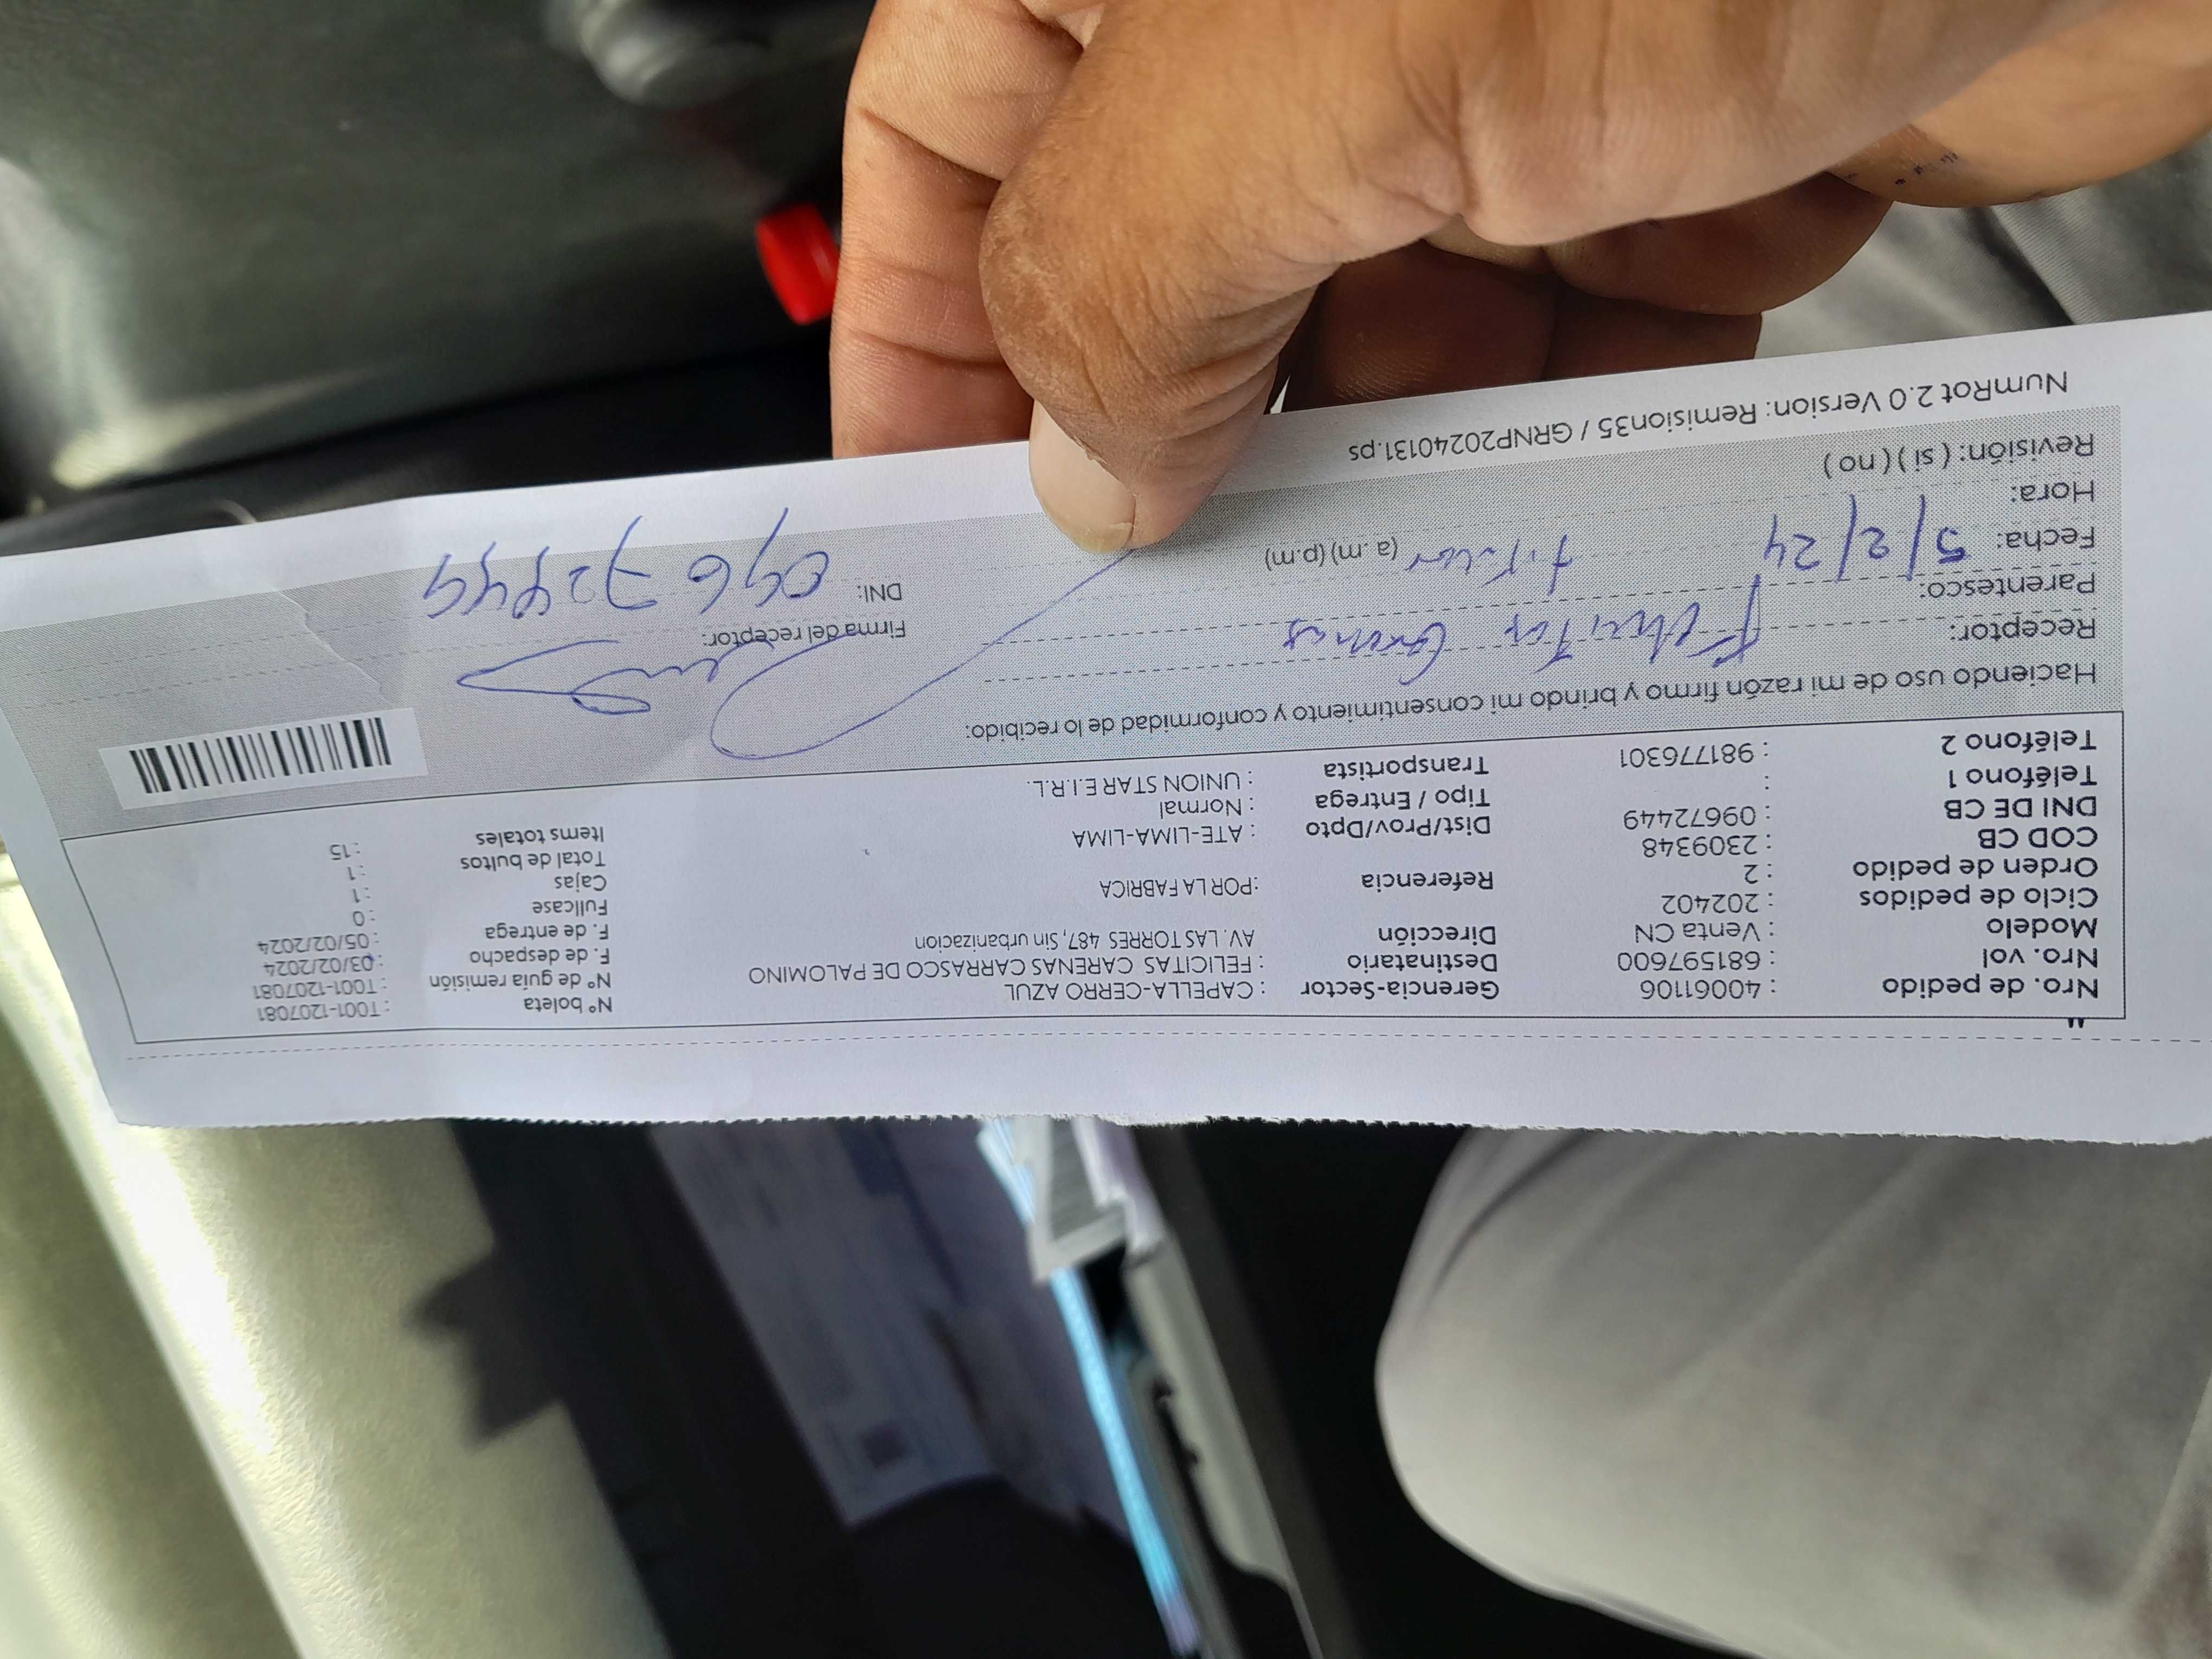 Nro. de pedido : 40061106 Gerencia-Sector : CAPELLA-CERRO AZUL Nº boleta : T001-1207081
Nro. vol : 681597600 Destinatario : FELICITAS CARENAS CARRASCO DE PALOMINO Nº de guía remisión : T001-1207081
Modelo : Venta CN Dirección AV. LAS TORRES 487, Sin urbanizacion F. de despacho : 03/02/2024
Ciclo de pedidos : 202402 F. de entrega : 05/02/2024
Orden de pedido : 2 Referencia :POR LA FABRICA Fullcase : 0
COD CB : 2309348 Cajas : 1
DNI DE CB : 09672449 Dist/Prov/Dpto : ATE-LIMA-LIMA Total de bultos : 1
Teléfono 1 : Tipo / Entrega : Normal Items totales : 15
Teléfono 2 : 981776301 Transportista : UNION STAR E.I.R.L.
Haciendo uso de mi razón firmo y brindo mi consentimiento y conformidad de lo recibido:
Receptor: Firma del receptor:
Parentesco: titular DNI:
Fecha: 5/2/24
Hora: (a.m) (p.m)
Revisión: ( si ) ( no )
NumRot 2.0 Version: Remision35 / GRNP20240131.ps